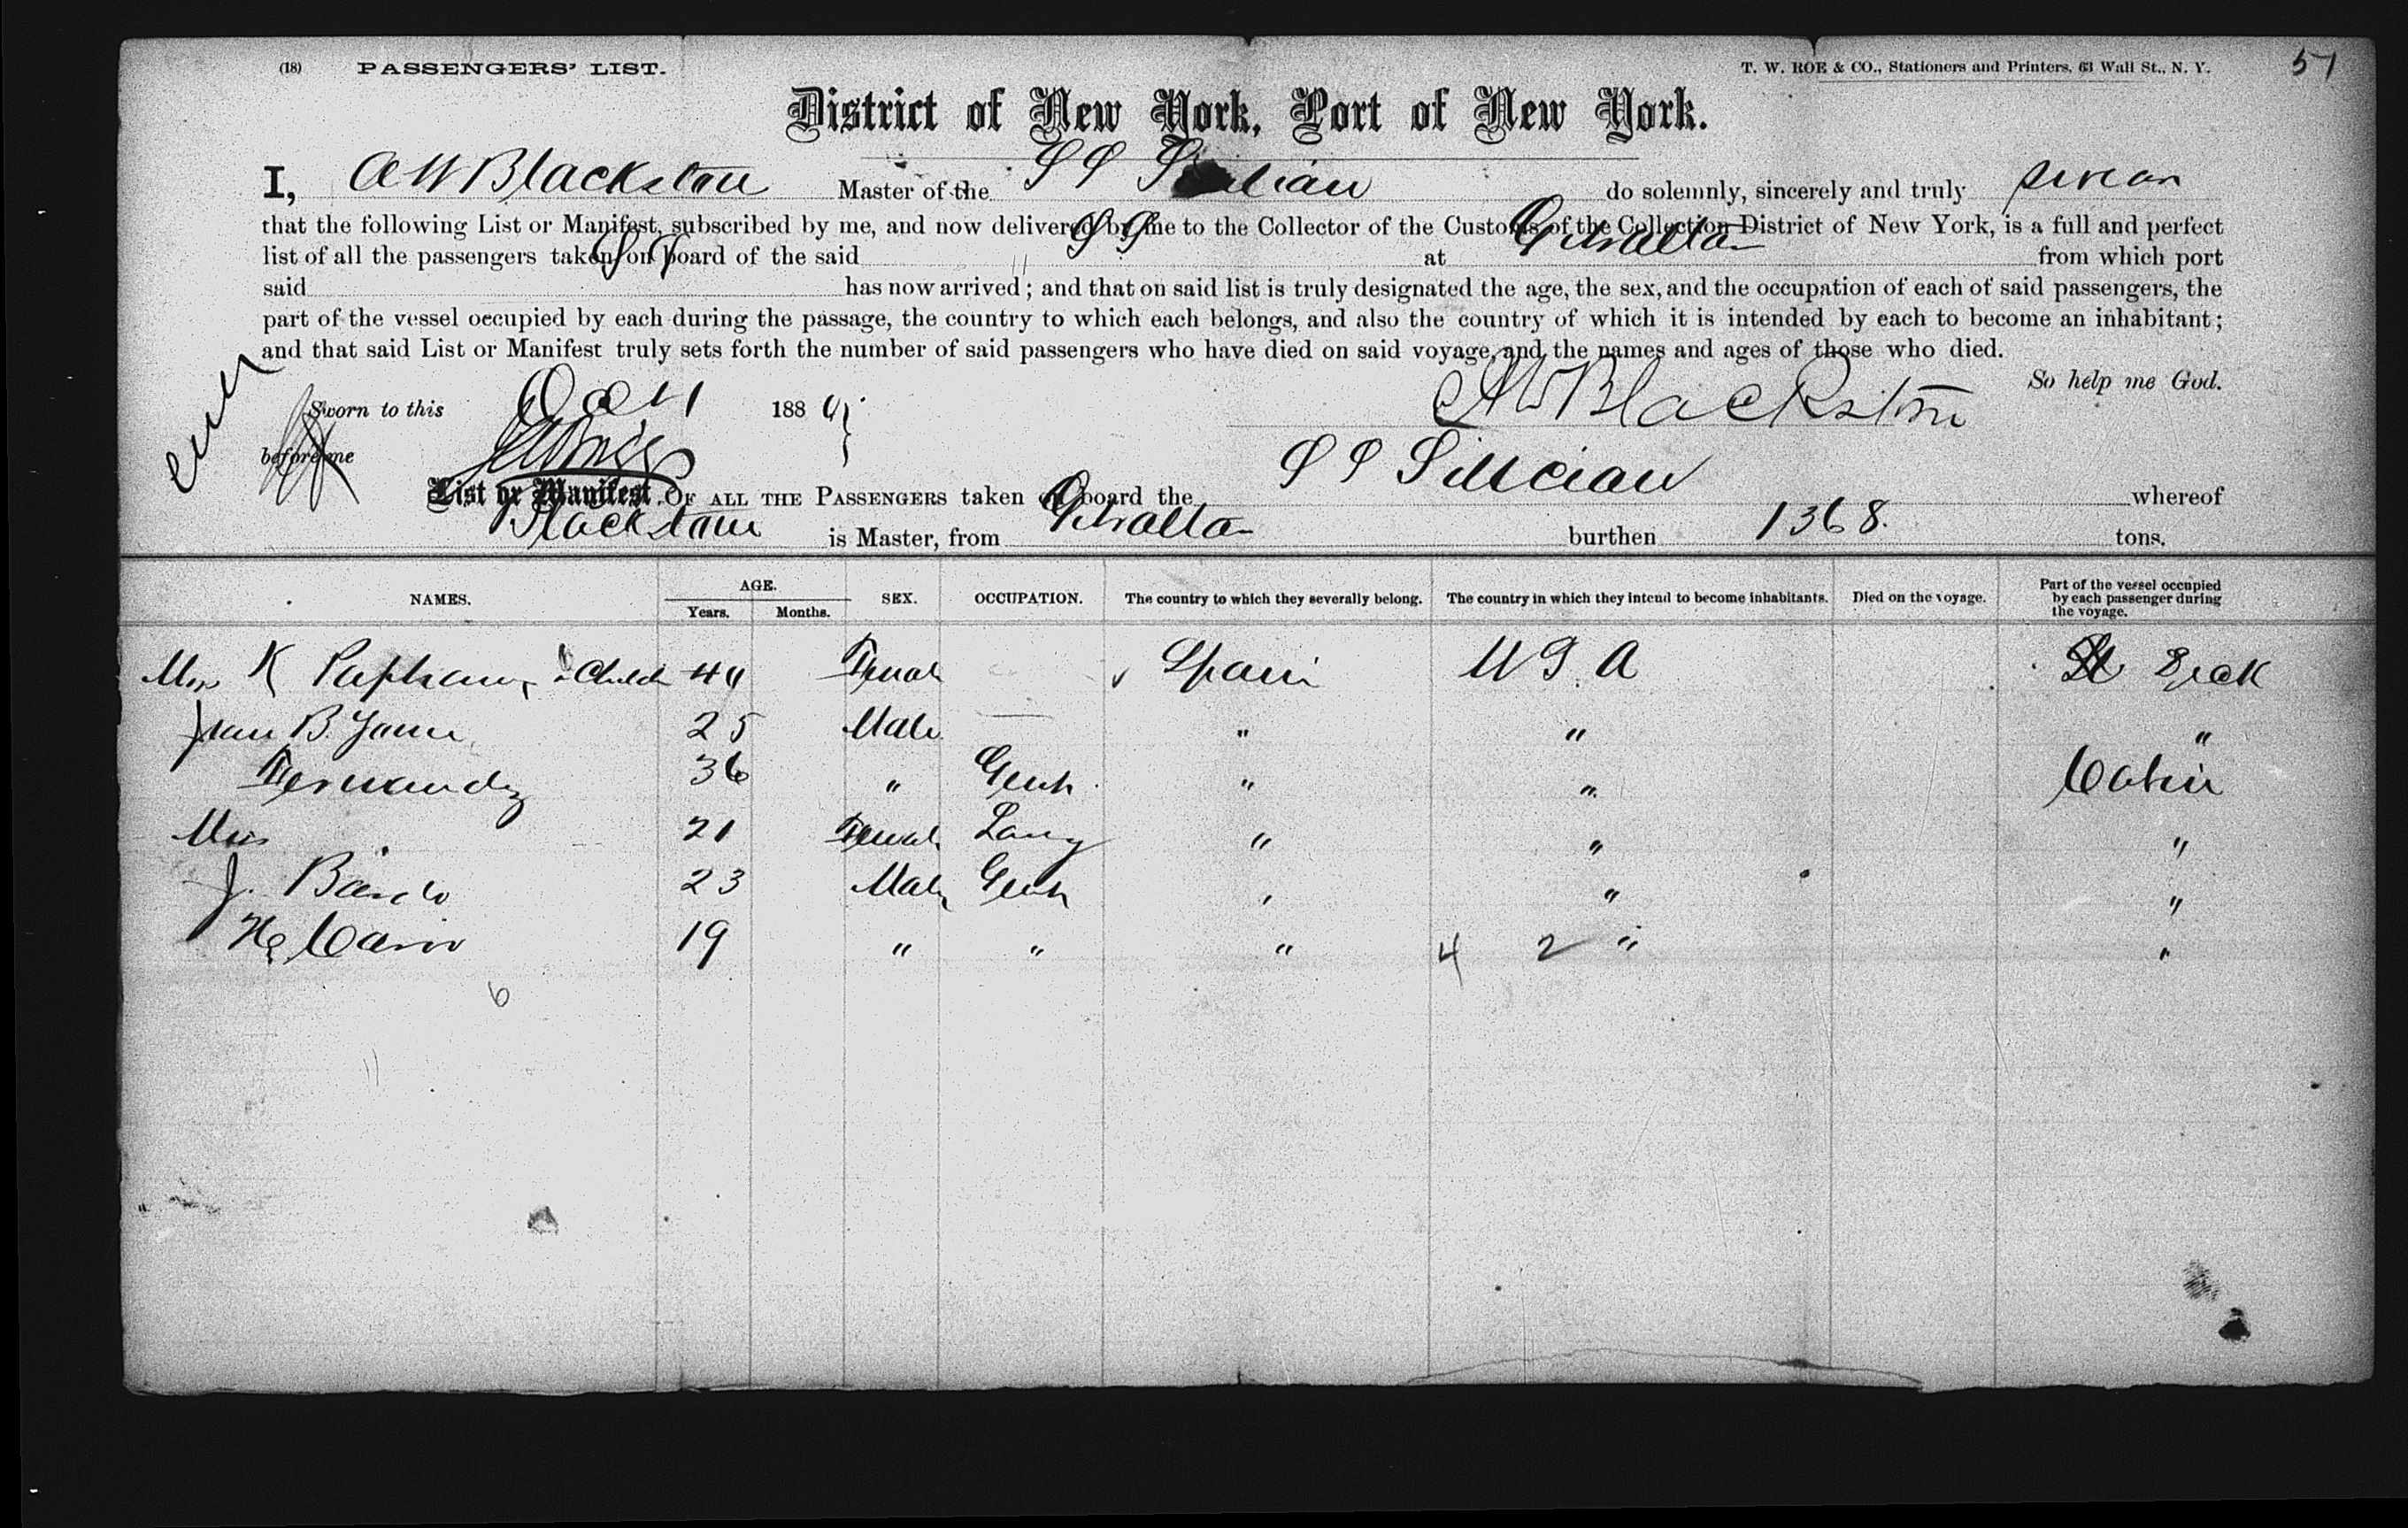 (18) PASSENGERS' LIST. T. W. ROE & CO., Stationers and Printers, 63 Wall St., N. Y. 51
District of New York, Port of New York.
I, A W Blackstone Master of the S S do solemnly, sincerely and truly swear
that the following List or Manifest, subscribed by me, and now delivered by me to the Collector of the Customs of the Collection District of New York, is a full and perfect
list of all the passengers taken on board of the said S S at Gibraltar from which port
said S S has now arrived; and that on said list is truly designated the age, the sex, and the occupation of each of said passengers, the
part of the vessel occupied by each during the passage, the country to which each belongs, and also the country of which it is intended by each to become an inhabitant;
and that said List or Manifest truly sets forth the number of said passengers who have died on said voyage, and the names and ages of those who died.
So help me God.
Sworn to this Oct 188 A W Blackstone
before me
List or Manifest OF ALL THE PASSENGERS taken on board the S S whereof
Blackstone is Master, from Gibraltar burthen 1368. tons.
NAMES. AGE. Years. Months. SEX. OCCUPATION. The country to which they severally belong. The country in which they intend to become inhabitants. Died on the voyage. Part of the vessel occupied by each passenger during the voyage.
K Child Female Spain U S A Deck
B. 25 Male " " "
Fernandez 36 " Gent " " Cabin
21 Female " " "
J. 23 Male Gent " " "
19 " " " 4 2 " "
6